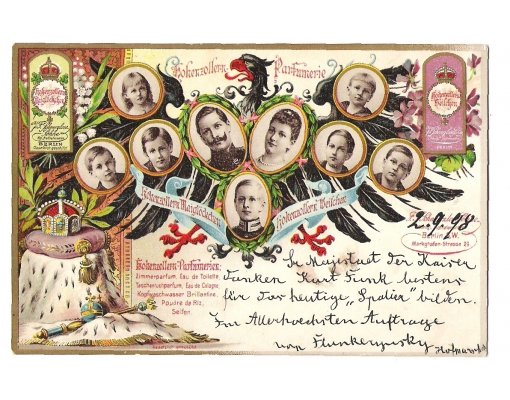 Hohenzollern Parfumerie
Hohenzollern
Maiglöckchen
BERLIN
Hohenzollern
Veilchen
Hohenzollern Maiglöckchen
Hohenzollern Veilchen
2.9.98
Berlin S.W.
Markgrafen-Strasse 26
Hohenzollern-Parfumerien:
Zimmerparfum, Eau de Toilette,
Taschentuchparfum, Eau de Cologne,
Kopfwaschwasser Brillantine,
Poudre de Riz,
Seifen.
Se Majestaet der Kaiser
Danken Kurt Funk bestens
für das heutige „Spalier" bilden.
Im Allerhoechsten Auftrage
von